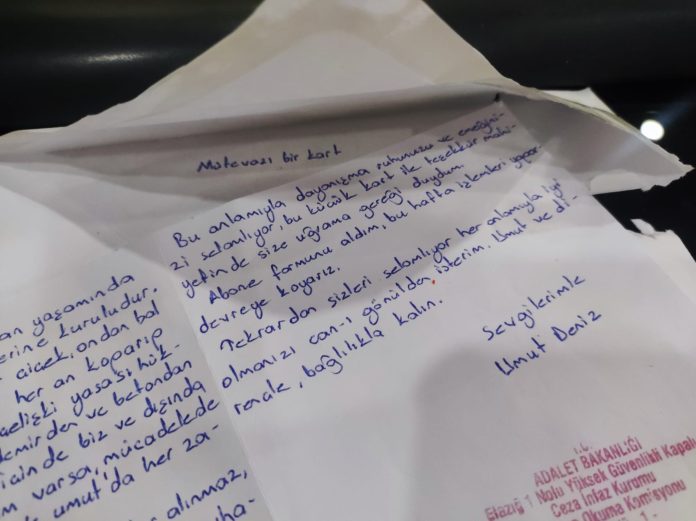 Mütevazı bir kart
Bu anlamıyla dayanışma ruhunuzu ve emeğini-
zi selamlıyor, bu küçük kart ile teşekkür mahi-
yetinde size uğrama gereği duydum.
Abone formunu aldım, bu hafta işlemleri yapar
devreye koyarız.
Tekrardan sizleri selamlıyor her anlamıyla iyi
olmanızı can-ı gönülden isterim. Umut ve di-
rençle, bağlılıkla kalın.
Sevgilerimle
Umut Deniz
an yaşamında
erine kuruludur.
çiçek, ondan bal
her an koparıp
çelişki yasası hük-
demirden ve betondan
içinde biz ve dışında
m varsa, mücadelede
umut'da her za-
alınmaz,
T.C.
ADALET BAKANLIĞI
Elazığ 1 Nolu Yüksek Güvenlikli Kapalı
Ceza İnfaz Kurumu
Okuma Komisyonu
- 1 -